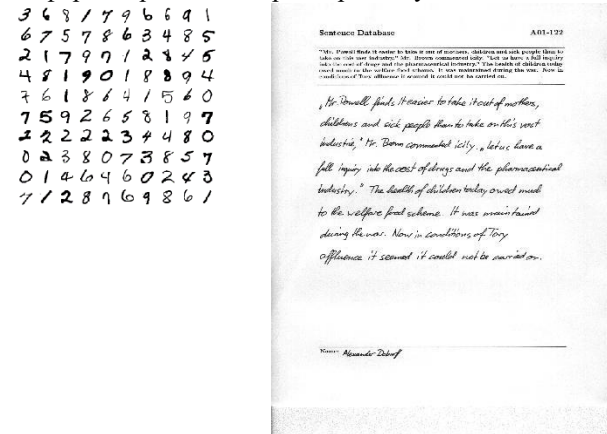 3 6 8 1 7 9 6 6 9 1
6 7 5 7 8 6 3 4 8 5
2 1 7 9 7 1 2 8 4 5
4 8 1 9 0 1 8 8 9 4
7 6 1 8 6 4 1 5 6 0
7 5 9 2 6 5 8 1 9 7
2 2 2 2 2 3 4 4 8 0
0 2 3 8 0 7 3 8 5 7
0 1 4 6 4 6 0 2 4 3
7 1 2 8 7 6 9 8 6 1
Sentence Database A01-122
"Mr. Powell finds it easier to take it out of mothers, children and sick people than to
take on this vast industry," Mr. Brown commented icily. "Let us have a full inquiry
into the cost of drugs and the pharmaceutical industry." The health of children today
owed much to the welfare food scheme. It was maintained during the war. Now in
conditions of Tory affluence it seemed it could not be carried on.
„Mr. Powell finds it easier to take it out of mothers,
childrens and sick people than to take on this vast
industrie," Mr. Brown commented icily. „Let us have a
full inquiry into the cost of drugs and the pharmaceutical
industry." The health of children today owed much
to the welfare food scheme. It was maintained
during the war. Now in conditions of Tory
affluence it seemed it could not be carried on.
Name: Alexander